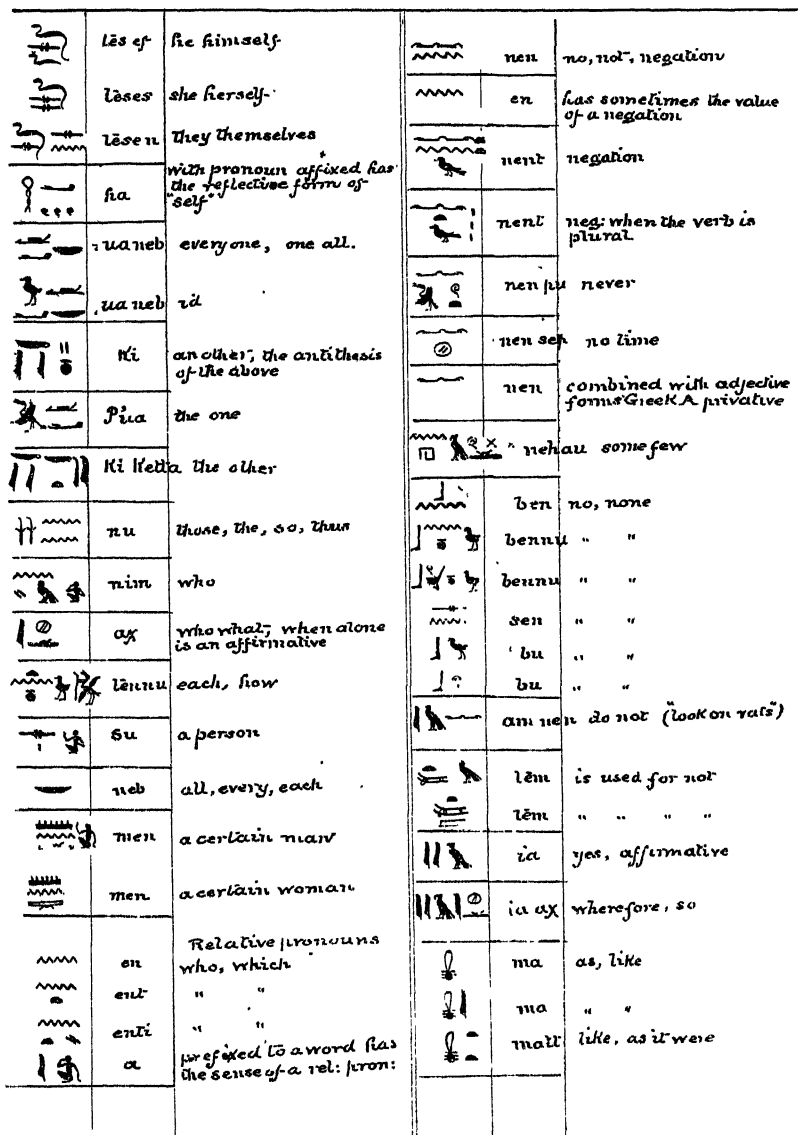 tēs ef he himself
tēses she herself
tēsen they themselves
ha with pronoun affixed has
the reflective form of
"self"
ua neb everyone, one all.
ua neb id
Ki another, the antithesis
of the above
Pua the one
Ki Ketta the other
nu those, the, so, thus
nim who
ax who what, when alone
is an affirmative
tennu each, how
su a person
neb all, every, each
men a certain man
men a certain woman
Relative pronouns
en who, which
ent " "
enti " "
a prefixed to a word has
the sense of a rel: pron:
nen no, not, negation
en has sometimes the value
of a negation
nent negation
nent neg: when the verb is
plural
nen pu never
nen sep no time
nen combined with adjective
forms Greek A privative
nehau some few
ben no, none
bennu " "
bennu " "
sen " "
bu " "
bu " "
am nen do not ("look on rats")
tēm is used for not
tēm " " " "
ia yes, affirmative
ia ax wherefore, so
ma as, like
ma " "
matt like, as it were